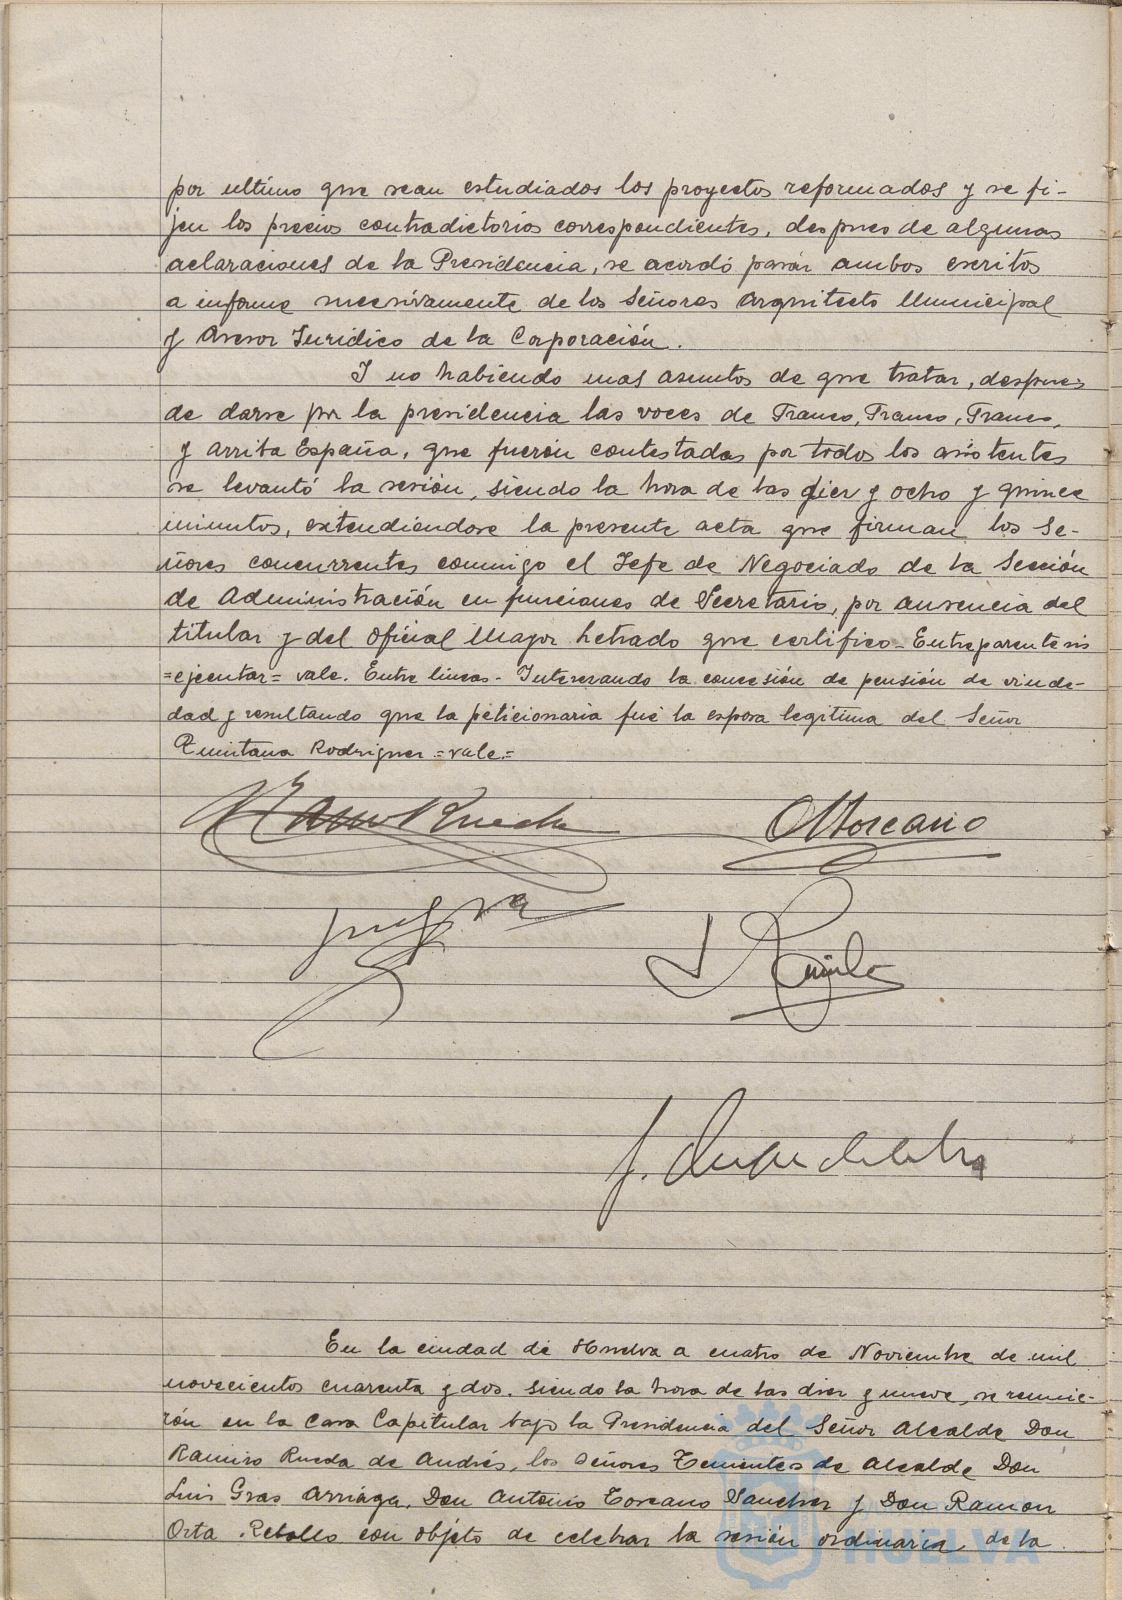 por ultimo que sean estudiados los proyectos reformados y se fi-
jen los precios contradictorios correspondientes, despues de algunas
aclaraciones de la Presidencia, se acordó pasár ambos escritos
a informe sucesivamente de los Señores Arquitecto Municipal
y Asesor Juridico de la Corporación.
Y no habiendo mas asuntos de que tratar, despues
de darse por la presidencia las voces de Franco, Franco, Franco,
y Arriba España, que fuerón contestadas por todos los asistentes
se levantó la sesión, siendo la hora de las diez y ocho y quince
minutos, extendiendose la presente acta que firman los Se-
ñores concurrentes conmigo el Jefe de Negociado de la Sección
de Administración en funciones de Secretario, por ausencia del
titular y del Oficial Mayor Letrado que certifico - Entreparentesis
=ejecutar= vale. Entre lineas - Interesando la concesión de pensión de viude-
dad y resultando que la peticionaria fué la esposa legitima del Señor
Quintana Rodriguez =vale.=
Ramiro Rueda
A Toscano
En la ciudad de Huelva a cuatro de Noviembre de mil
novecientos cuarenta y dos. siendo la hora de las diez y nueve, se reunie-
rón en la Casa Capitular bajo la Presidencia del Señor Alcalde Don
Ramiro Rueda de Andrés, los Señores Tenientes de Alcalde Don
Luis Gras Arriaga, Don Antonio Toscano Sanchez y Don Ramon
Orta Rebollo con objeto de celebrar la sesión ordinaria de la
HUELVA